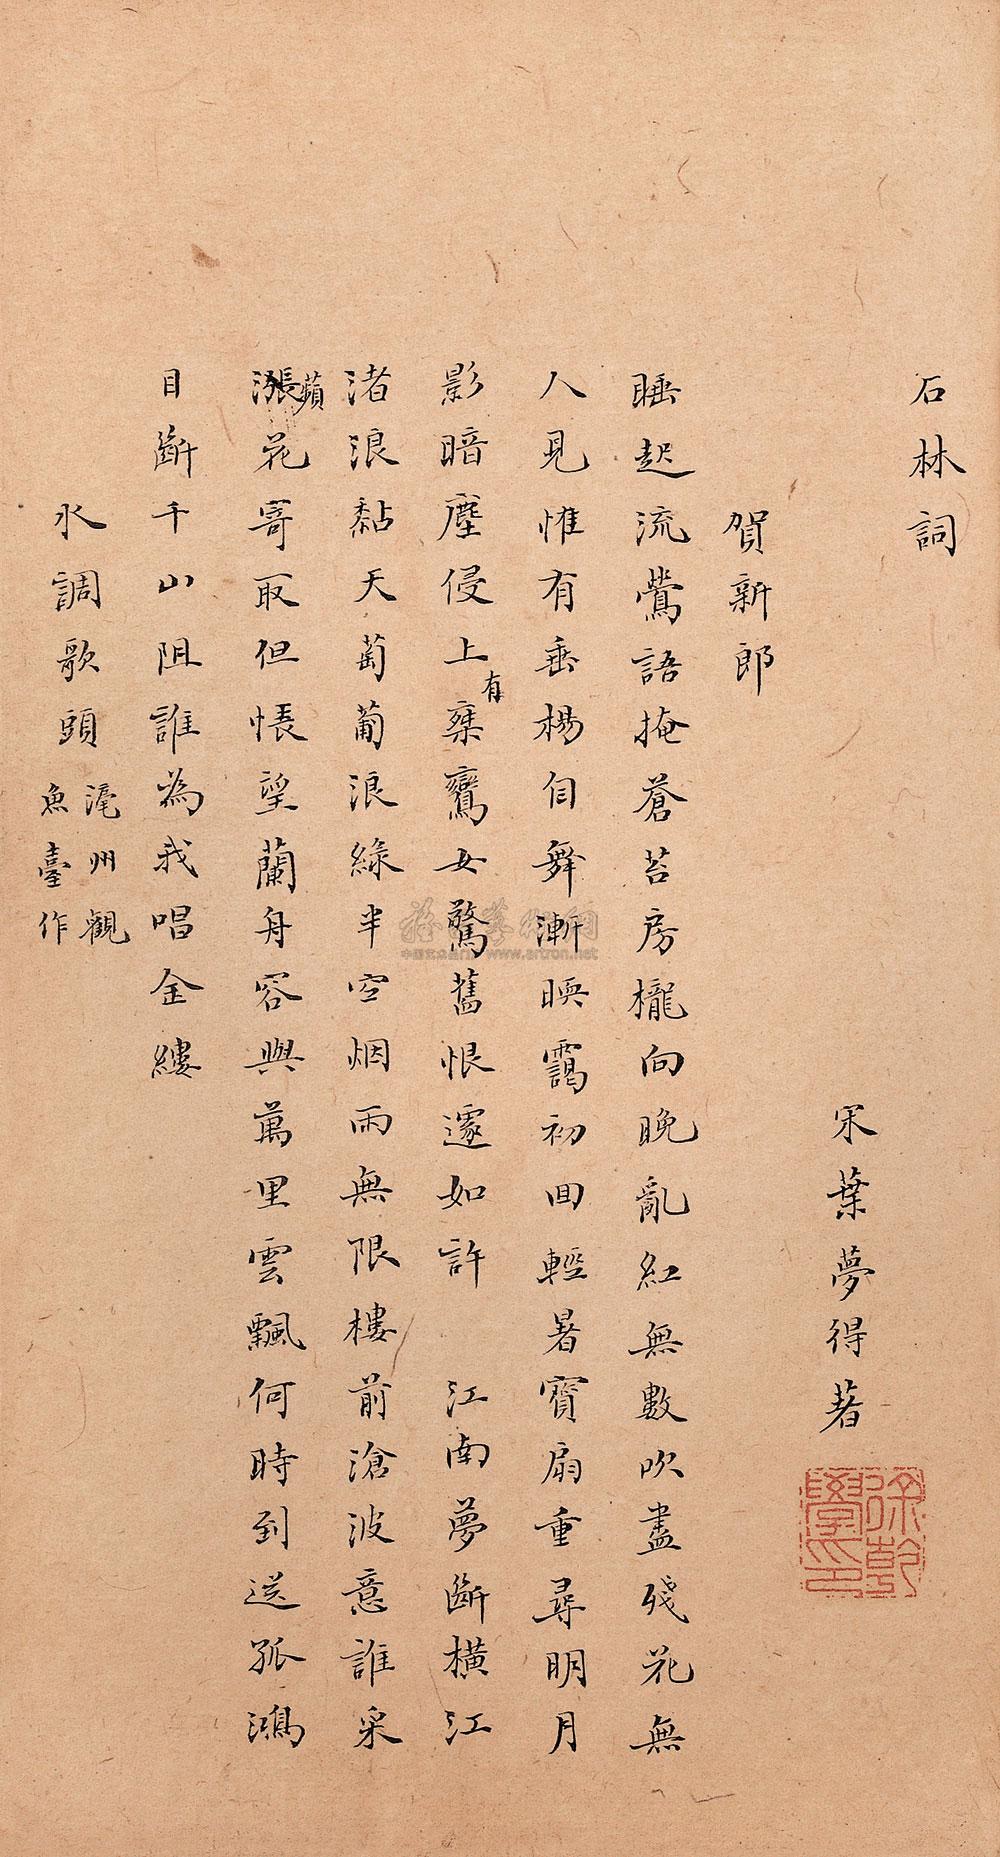 石林詞
宋葉夢得著
賀新郎
睡起流鶯語掩蒼苔房櫳向晚亂紅無數吹盡殘花無
人見惟有垂楊自舞漸暖靄初回輕暑寶扇重尋明月
影暗塵侵上有乘鸞女驚舊恨遽如許　江南夢斷橫江
渚浪黏天葡萄浪綠半空烟雨無限樓前滄波意誰采
漲蘋花寄取但悵望蘭舟容與萬里雲飄何時到送孤鴻
目斷千山阻誰為我唱金縷
水調歌頭
濠州觀
魚臺作
徐乾學印
www.artron.net